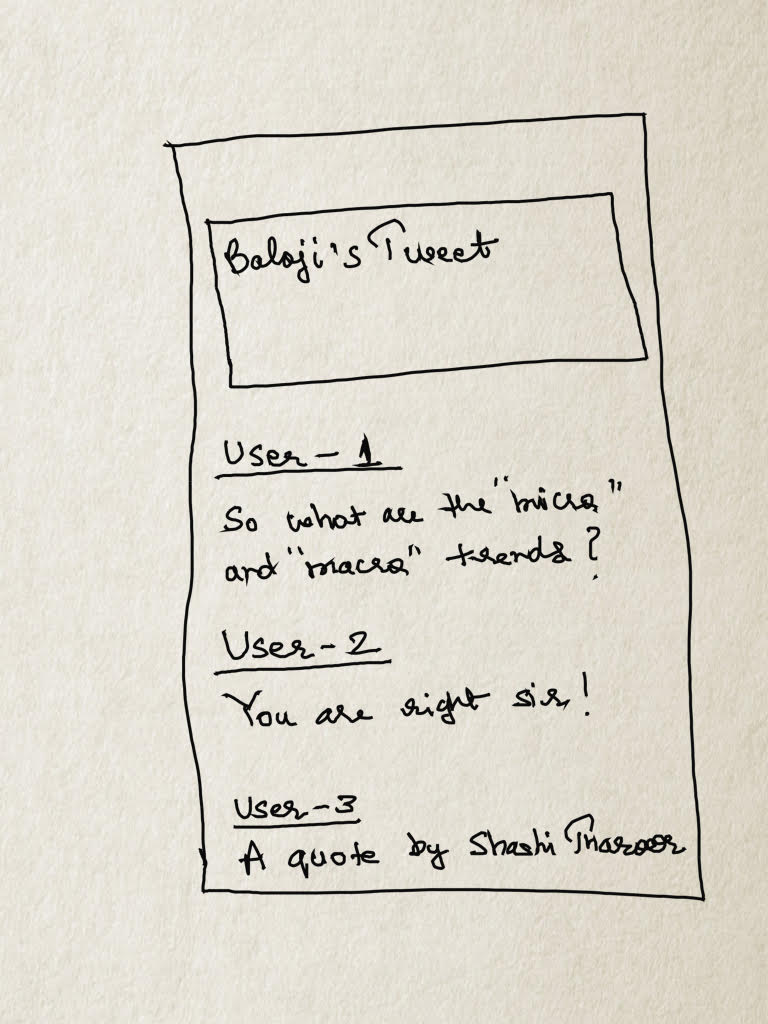 Balaji's Tweet
User - 1
So what are the "micro"
and "macro" trends?
User - 2
You are right sir!
User - 3
A quote by Shashi Tharoor